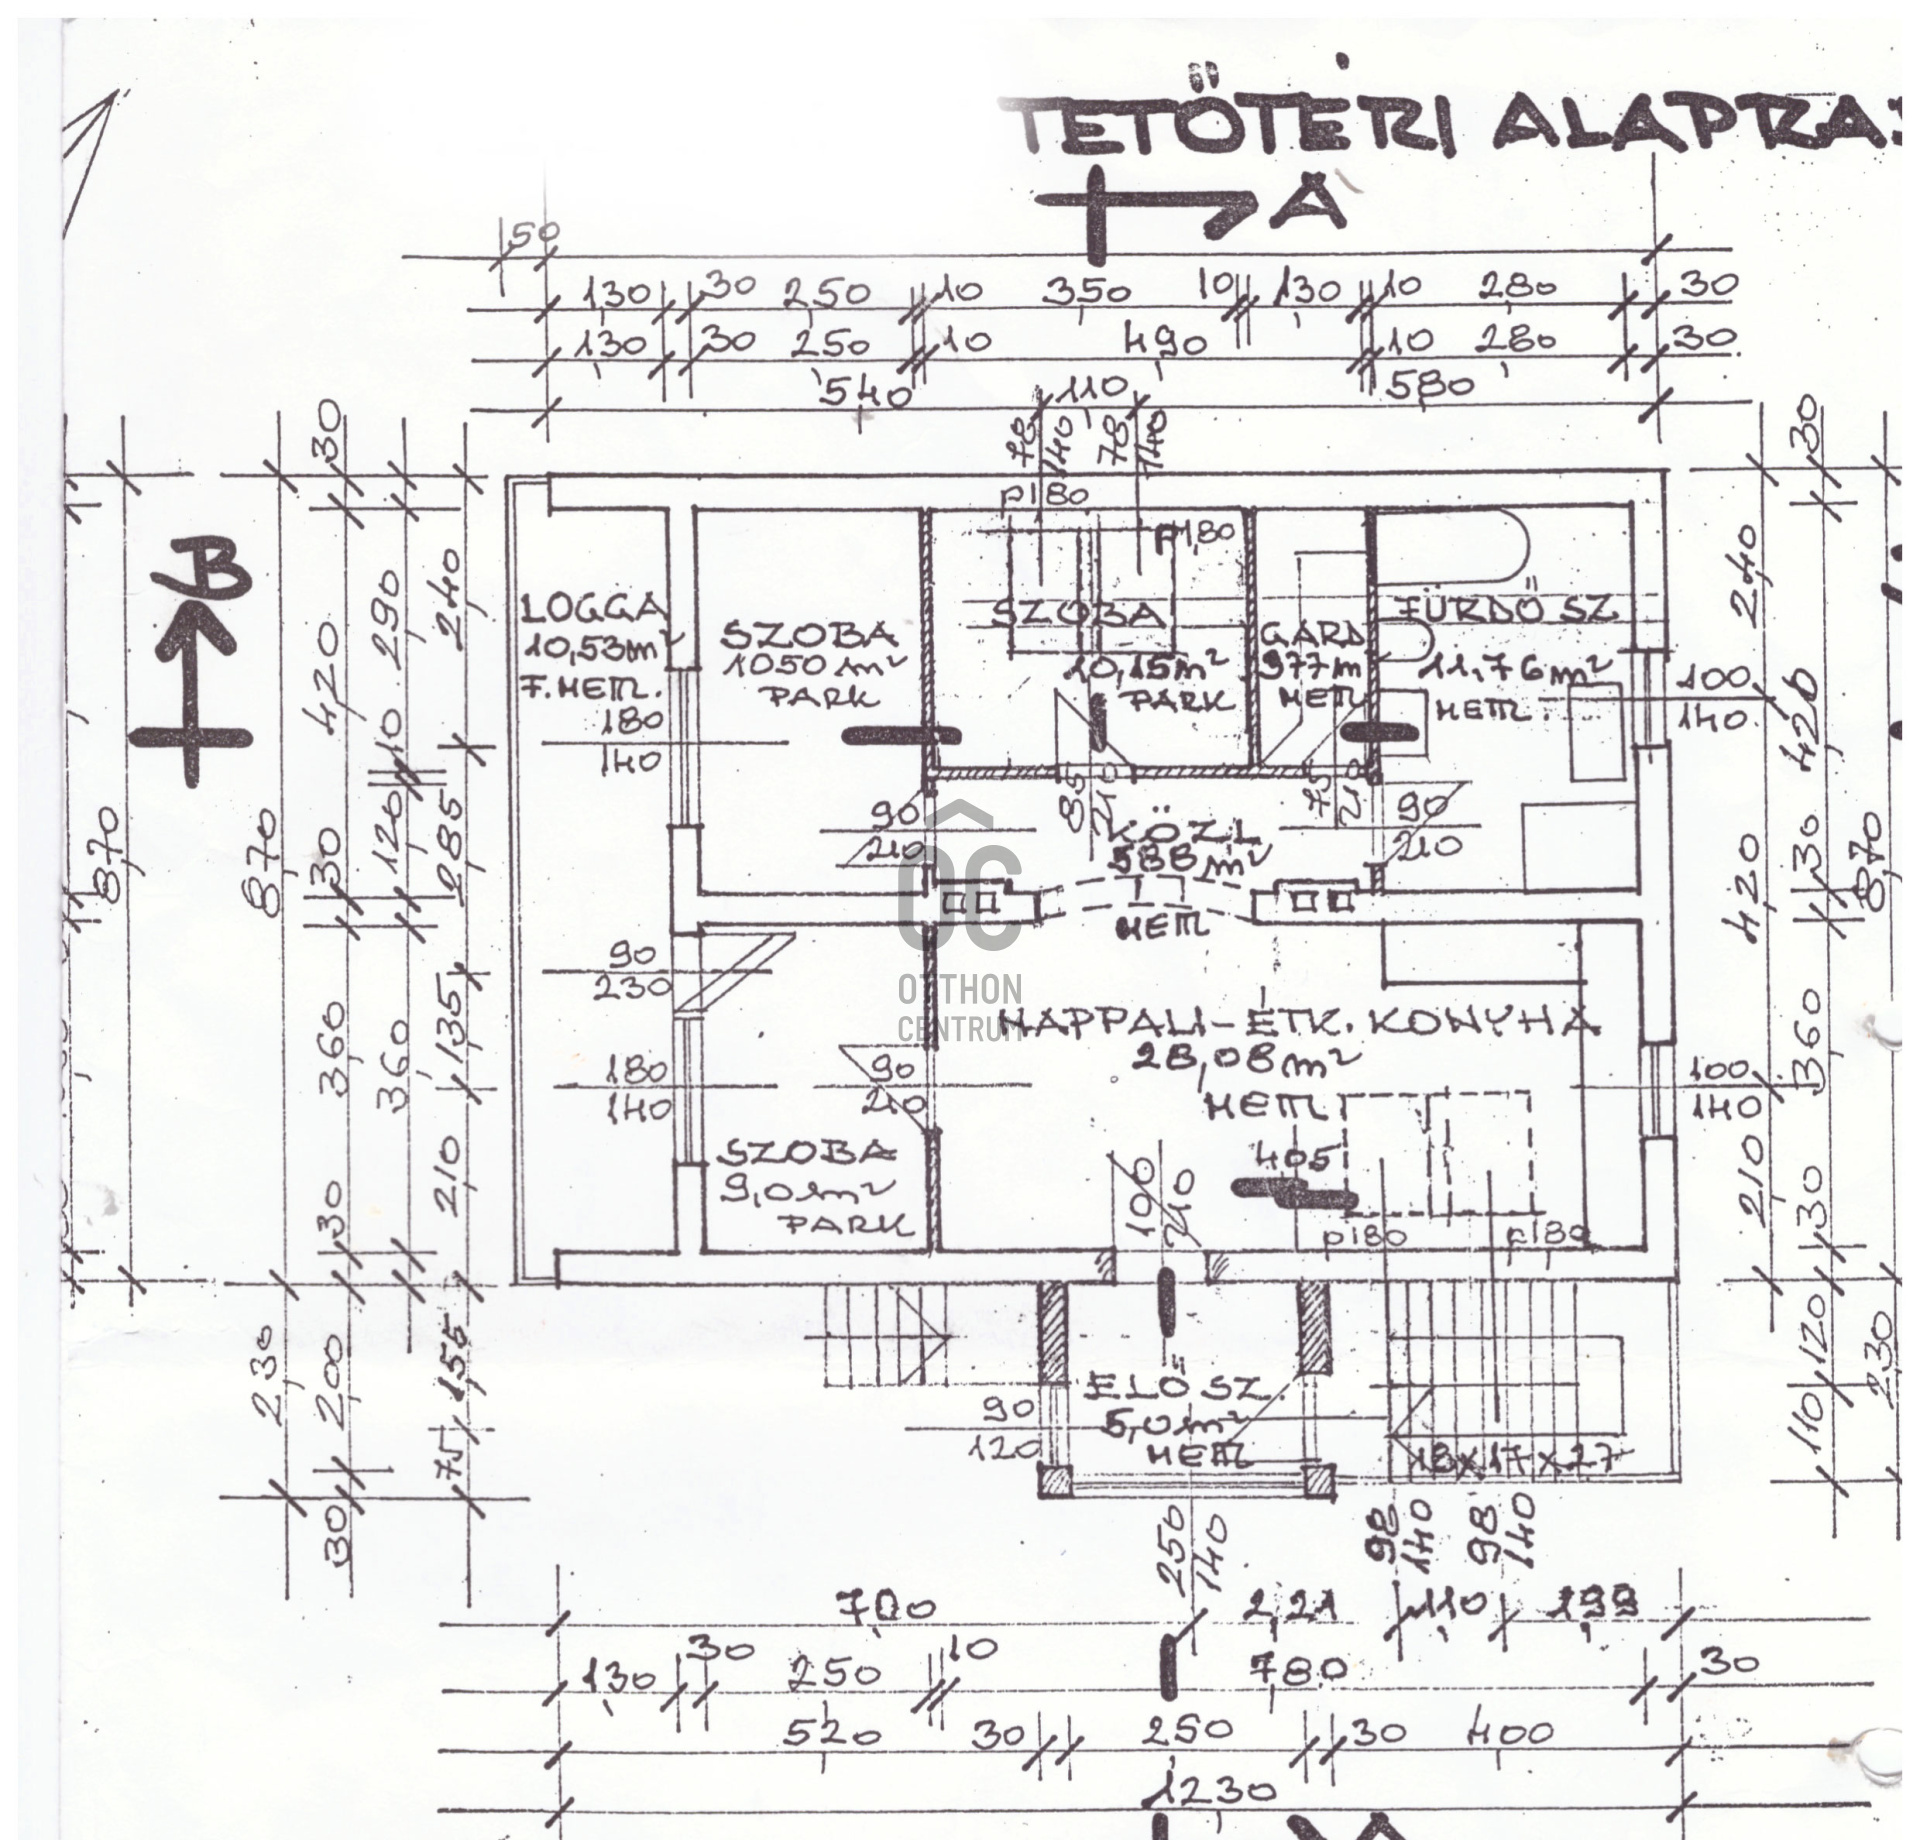 TETŐTÉRI ALAPRA
A
50
130 30 250 10 350 10 130 10 280 30
130 30 250 10 490 10 280 30
540 110 580
78 140 78 140
p180
p1,80
B
870
870
30 420 30 360 30
290 10 120 360
240 285 135 210
230
200 30
155 75
LOGGA
10,53m²
F.HETT.
180
140
SZOBA
1050 m²
PARK
SZOBA
10,15m²
PARK
GARD
977m
HETT.
FÜRDŐ SZ
11,76m²
HETT.
100
140
90
210
85
210
75
210
90
210
KÖZL
588 m²
HETT
90
230
180
140
90
210
OC
OTTHON
CENTRUM
NAPPALI-ÉTK. KONYHA
28,08m²
HETT
405
100
140
SZOBA
9,0m²
PARK
100
210
p180
p180
30
240 420 210
420 30 360 30
120 110
870
230
ELŐ SZ.
5,0m²
HETT
90
120
18x17x27
250
140
98
140
98
140
700 2,21 110 199
130 30 250 10 780 30
520 30 250 30 400
1230